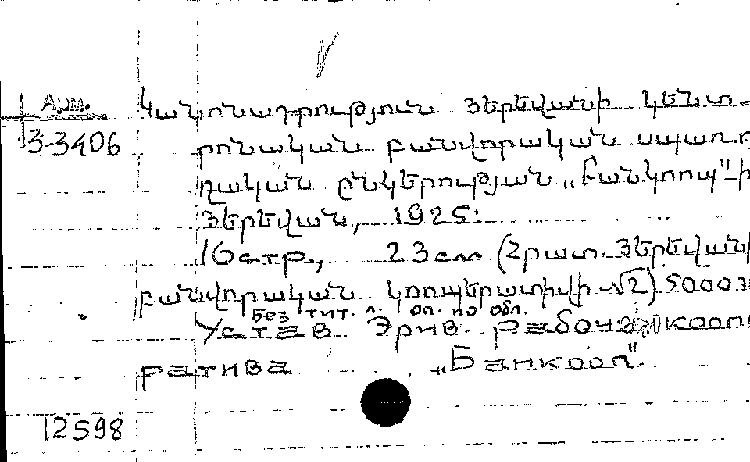 Арм. Կանոնադրություն Յերեվանի կենտ-
3-3406 րոնական բանվորական սպառո-
ղական ընկերության „Բանկոոպ"-ի
Յերեվան, 1925:
16 стр., 23 см (Հրատ. Յերեվանի
բանվորական կոոպերատիվի №2) 5000 э
Без тит. л. Оп. по обл.
Устав Эрив. рабочего коопе
ратива „Банкооп".
12598